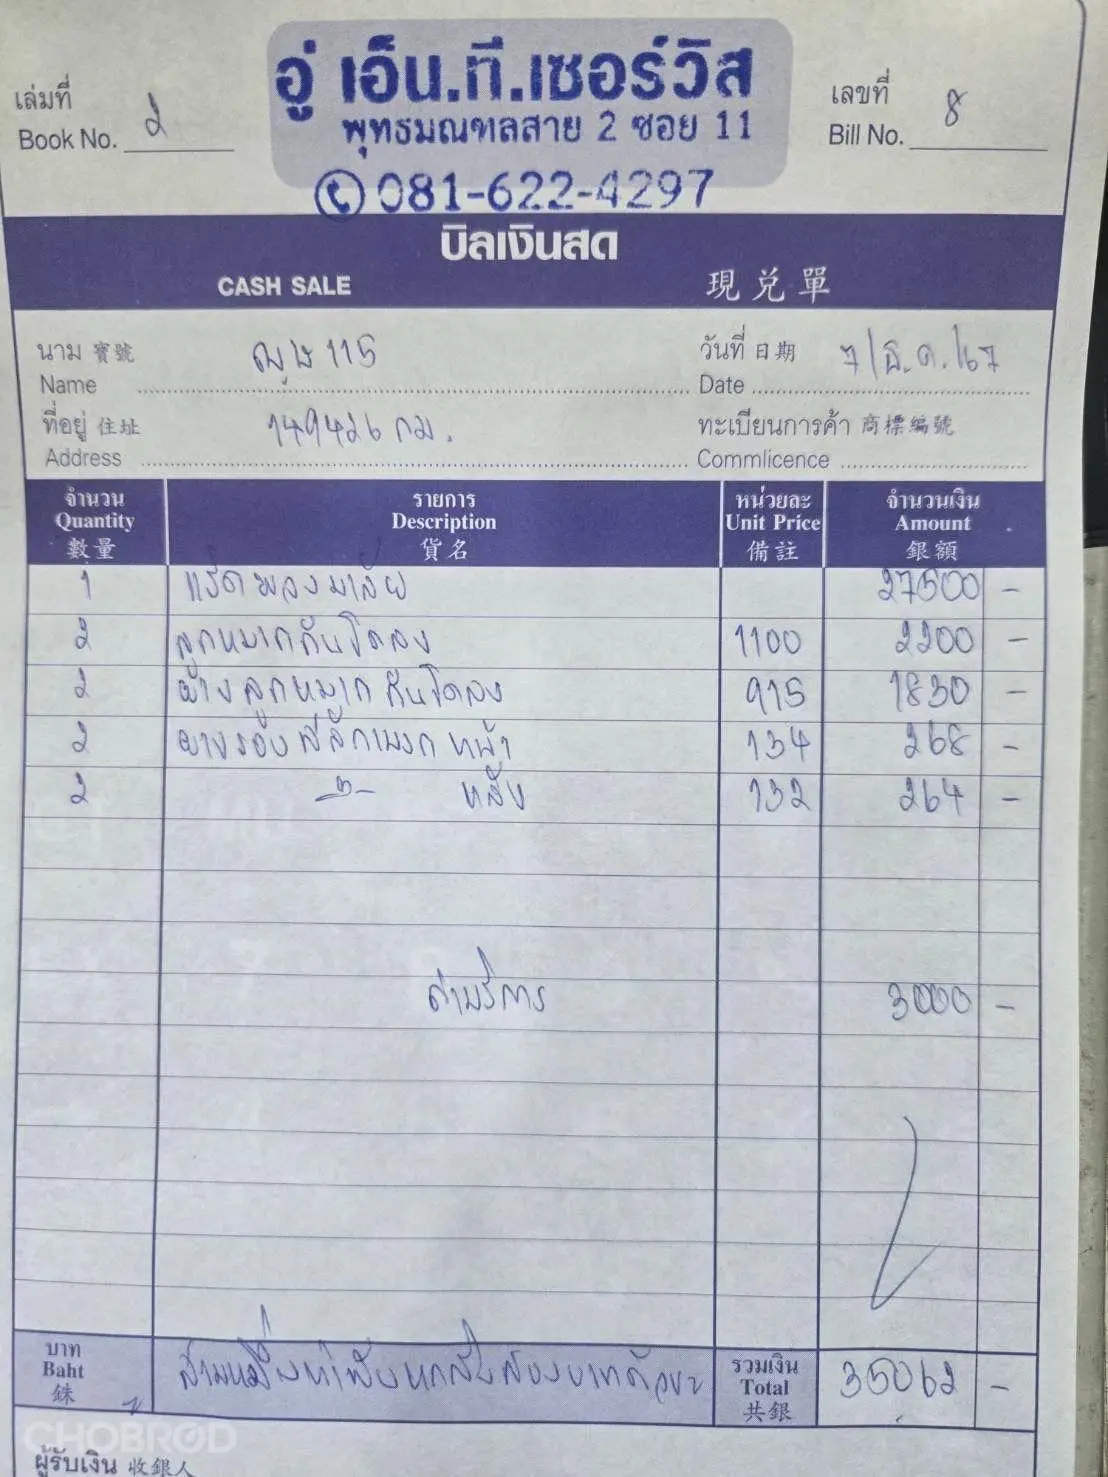 อู่ เอ็น.ที.เซอร์วิส
พุทธมณฑลสาย 2 ซอย 11
081-622-4297
เล่มที่
Book No. 2
เลขที่
Bill No. 8
บิลเงินสด
CASH SALE 現兑單
นาม 寶號
Name 115
วันที่ 日期
Date 7/ธ.ค./67
ที่อยู่ 住址
Address 149426 กม.
ทะเบียนการค้า 商標編號
Commlicence
จำนวน รายการ หน่วยละ จำนวนเงิน
Quantity Description Unit Price Amount
數量 貨名 備註 銀額
1 แร็คพวงมาลัย 27500 -
2 ลูกหมากกันโคลง 1100 2200 -
2 ยางลูกหมากกันโคลง 915 1830 -
2 ยางรอง หน้า 134 268 -
2 หลัง 132 264 -
ค่าบริการ 3000 -
บาท
Baht
銖
สามหมื่นห้าพันหกสิบสองบาทถ้วน
รวมเงิน
Total
共銀
35062 -
CHOBROD
ผู้รับเงิน 收銀人